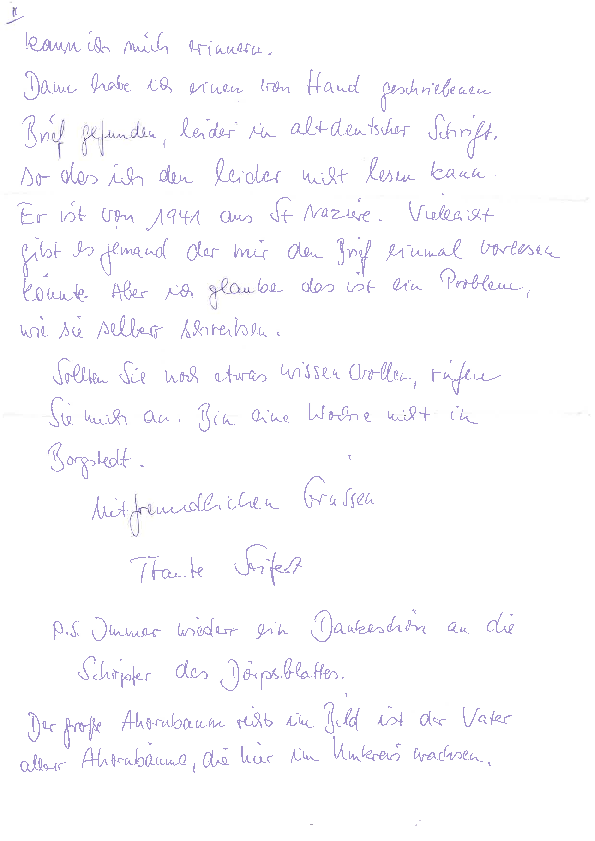 kann ich mich erinnern.
Dann habe ich einen von Hand geschriebenen
Brief gefunden, leider in altdeutscher Schrift.
so das ich den leider nicht lesen kann.
Er ist von 1941 aus St Naziere. Vieleicht
gibt es jemand der mir den Brief einmal vorlesen
könnte. Aber ich glaube das ist ein Problem,
wie sie selber schreiben.
Sollten Sie noch etwas wissen wollen, rufen
Sie mich an. Bin eine Woche nicht in
Borgstedt.
Mit freundlichen Grussen
Seifert
P.S. Immer wieder ein Dankeschön an die
Schöpfer des Dörpsblattes.
Der große Ahornbaum rechts im Bild ist der Vater
aller Ahornbäume, die hier im Umkreis wachsen.